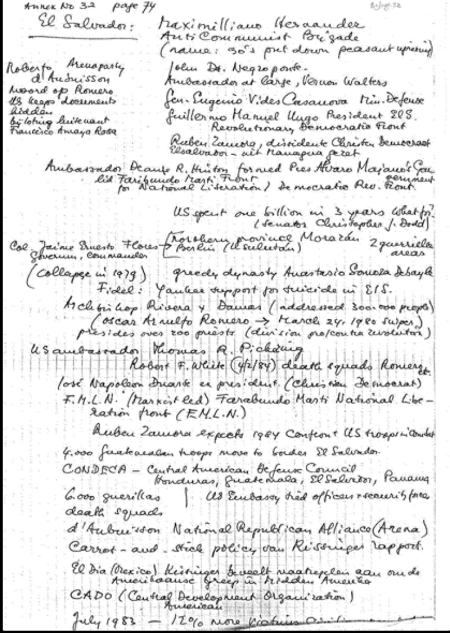 Annex No 32 page 74
El Salvador: Maximilliano Hernandez
Anti Communist Brigade
(name: 30's put down peasant uprising)
Roberto Arenaparty
d'Aubuisson
moord op Romero
US keeps documents
hidden
by lieutenant
Francisco Amaya Rosa
John D. Negroponte
Ambassador at large, Vernon Walters
Gen. Eugenio Vides Casanova Min. Defense
Guillermo Manuel Ungo President ElS.
Revolutionary Democratic Front
Ruben Zamora, dissident Christen Democraat
Elsalvador - uit Managua gezet
Ambassador Deane R. Hinton formed Pres Alvaro Majano's Government
led Faribundo Marti Front
for National Liberation / Democratic Rev. Front.
US spent one billion in 3 years What for?
(Senator Christopher J. Dodd)
Col. Jaime Ernesto Flores
Govern. Commander
(Northern province Morazan
Berlin (Usulutan)
2 guerrillas
areas
(Collapse in 1979) greedy dynasty Anastasio Somoza Debayle
Fidel: Yankee support for suicide in ElS.
Archbishop Rivera y Damas (addressed 300.000 people)
(Oscar Arnulfo Romero → March 24, 1980
presides over 200 priests (division pro/contra revolution)
US ambassador Thomas R. Pickering
Robert E. White (4/2/84) death squads Romero
José Napoleon Duarte ex president. (Christian Democrat)
F.M.L.N. (Marxist led) Farabundo Marti National Libe-
ration front (F.M.L.N.)
Ruben Zamora expects 1984 Confront US troops in combat
4.000 Guatemalan troops move to border El Salvador.
CONDECA - Central American Defense Council
Honduras, Guatemala, El Salvador, Panama
6.000 guerillas | US Embassy tied officers + security force
death squads
d'Aubuisson National Republican Alliance (Arena)
Carrot - and - stick policy van Kissinger rapport.
El Dia (Mexico) Kissinger beveelt maatregelen aan om de
Amerikaanse greep in Midden Amerika
CADO (Central Development Organization)
American
July 1983 - 12% more